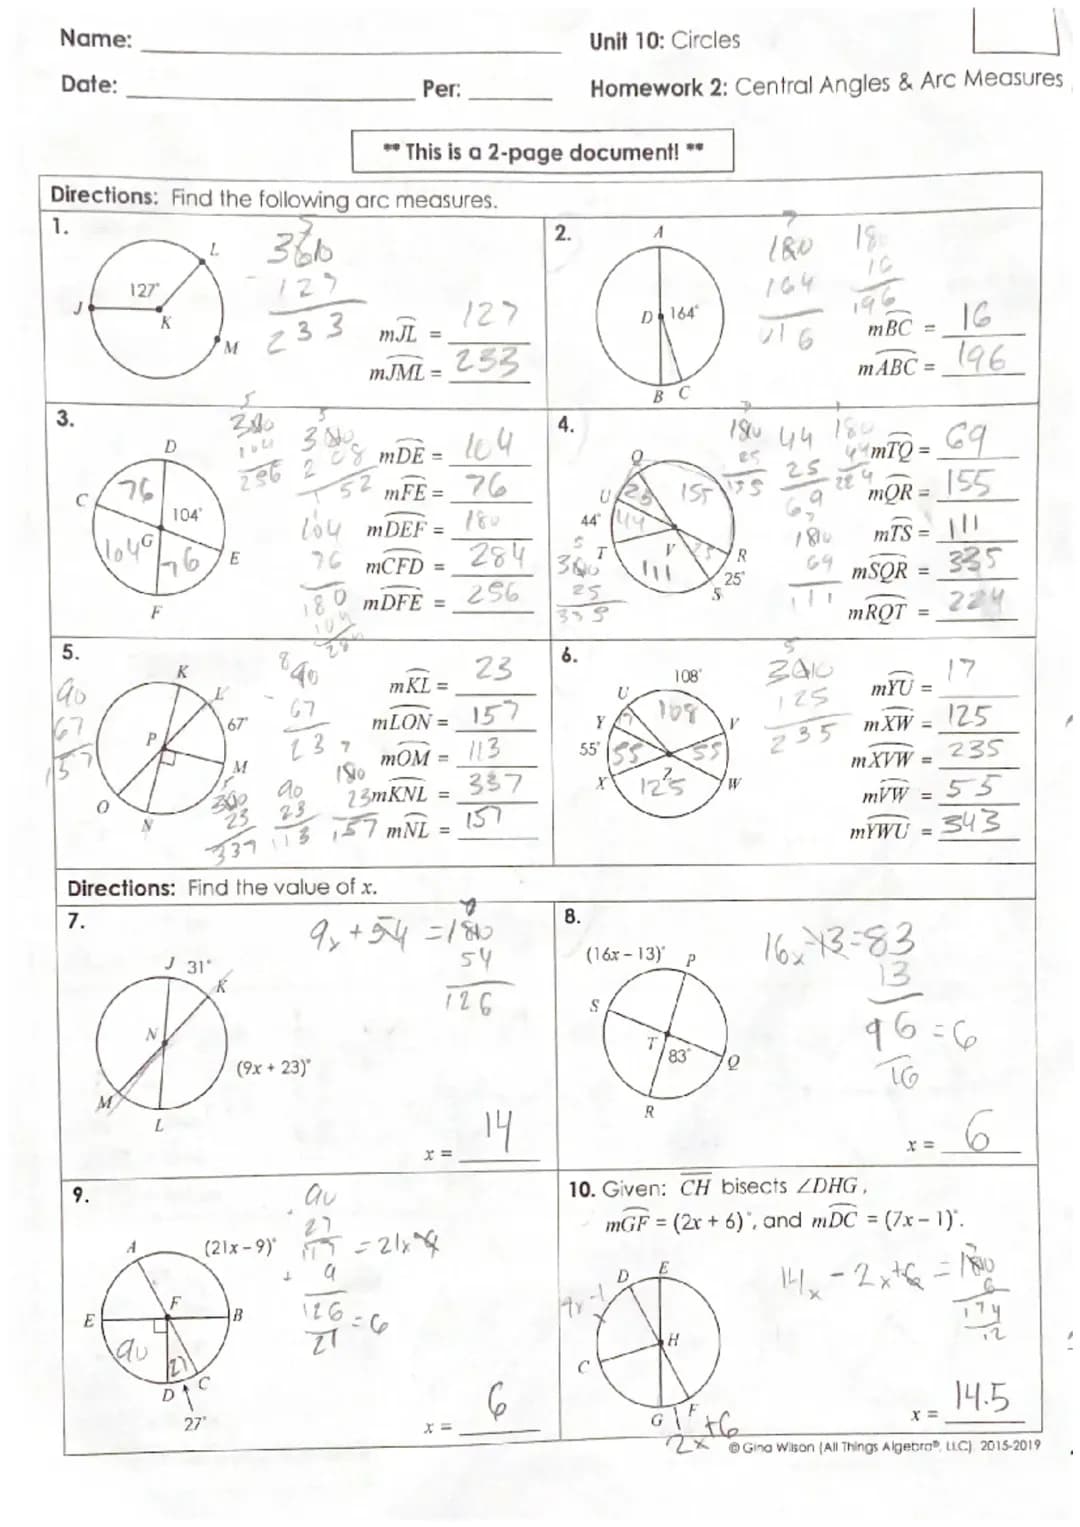 Name:
Unit 10: Circles
Date:
Per:
Homework 2: Central Angles & Arc Measures
** This is a 2-page document! **
Directions: Find the following arc measures.
1.
L
127°
J
K
M
360
127
233
mJL = 127
mJML = 233
2.
A
D
164°
B C
180
164
016
180
16
196
mBC = 16
mABC = 196
3.
D
C
76
104°
G
104
76
E
F
360
104
256
360
208
152
104
76
180
104
284
mDE = 104
mFE = 76
mDEF = 180
mCFD = 284
mDFE = 256
4.
Q
U
25
155
44°
44
T
V
25
R
111
25°
S
180
25
155
44
25
69
180
44
224
180
69
111
360
25
335
mTQ = 69
mQR = 155
mTS = 111
mSQR = 335
mRQT = 224
5.
K
L
67°
P
M
O
N
90
67
157
90
67
23
360
23
337
90
23
113
180
23
157
mKL = 23
mLON = 157
mOM = 113
mKNL = 337
mNL = 157
6.
108°
U
108
Y
17
V
55°
55
55
X
Z
W
125
360
125
235
mYU = 17
mXW = 125
mXVW = 235
mVW = 55
mYWU = 343
Directions: Find the value of x.
7.
9x + 54 = 180
54
126
J 31°
K
N
(9x + 23)°
M
L
x = 14
8.
(16x – 13)°
P
S
T
83°
Q
R
16x-13=83
13
96 = 6
16
x = 6
9.
A
(21x – 9)°
F
E
B
90
27
D
C
27°
90
27
117 = 21x-9
+ 9
126 = 6
21
x = 6
10. Given: CH bisects ∠DHG,
mGF = (2x + 6)°, and mDC = (7x – 1)°.
D
E
7x-1
H
C
G
F
2x+6
14x - 2x+6 = 180
6
174
12
x = 14.5
© Gina Wilson (All Things Algebra®, LLC), 2015-2019